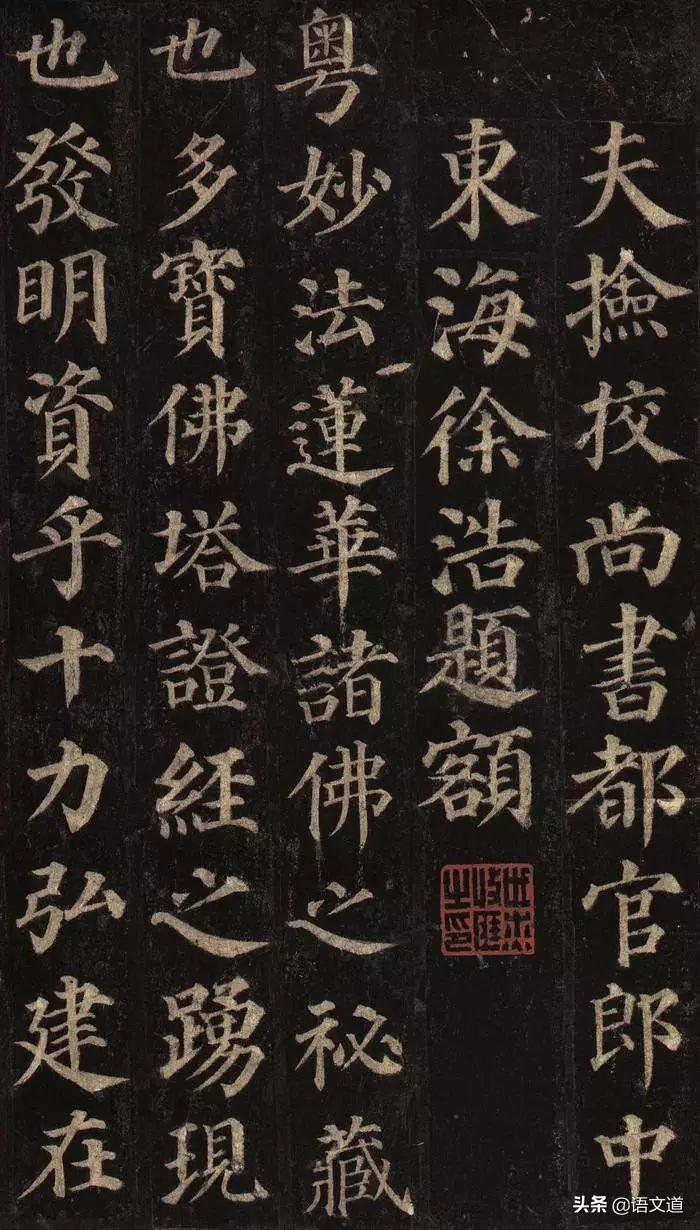 夫撿挍尚書都官郎中
東海徐浩題額
粵妙法蓮華諸佛之秘藏
也多寶佛塔證經之踴現
也發明資乎十力弘建在
头条 @语文道